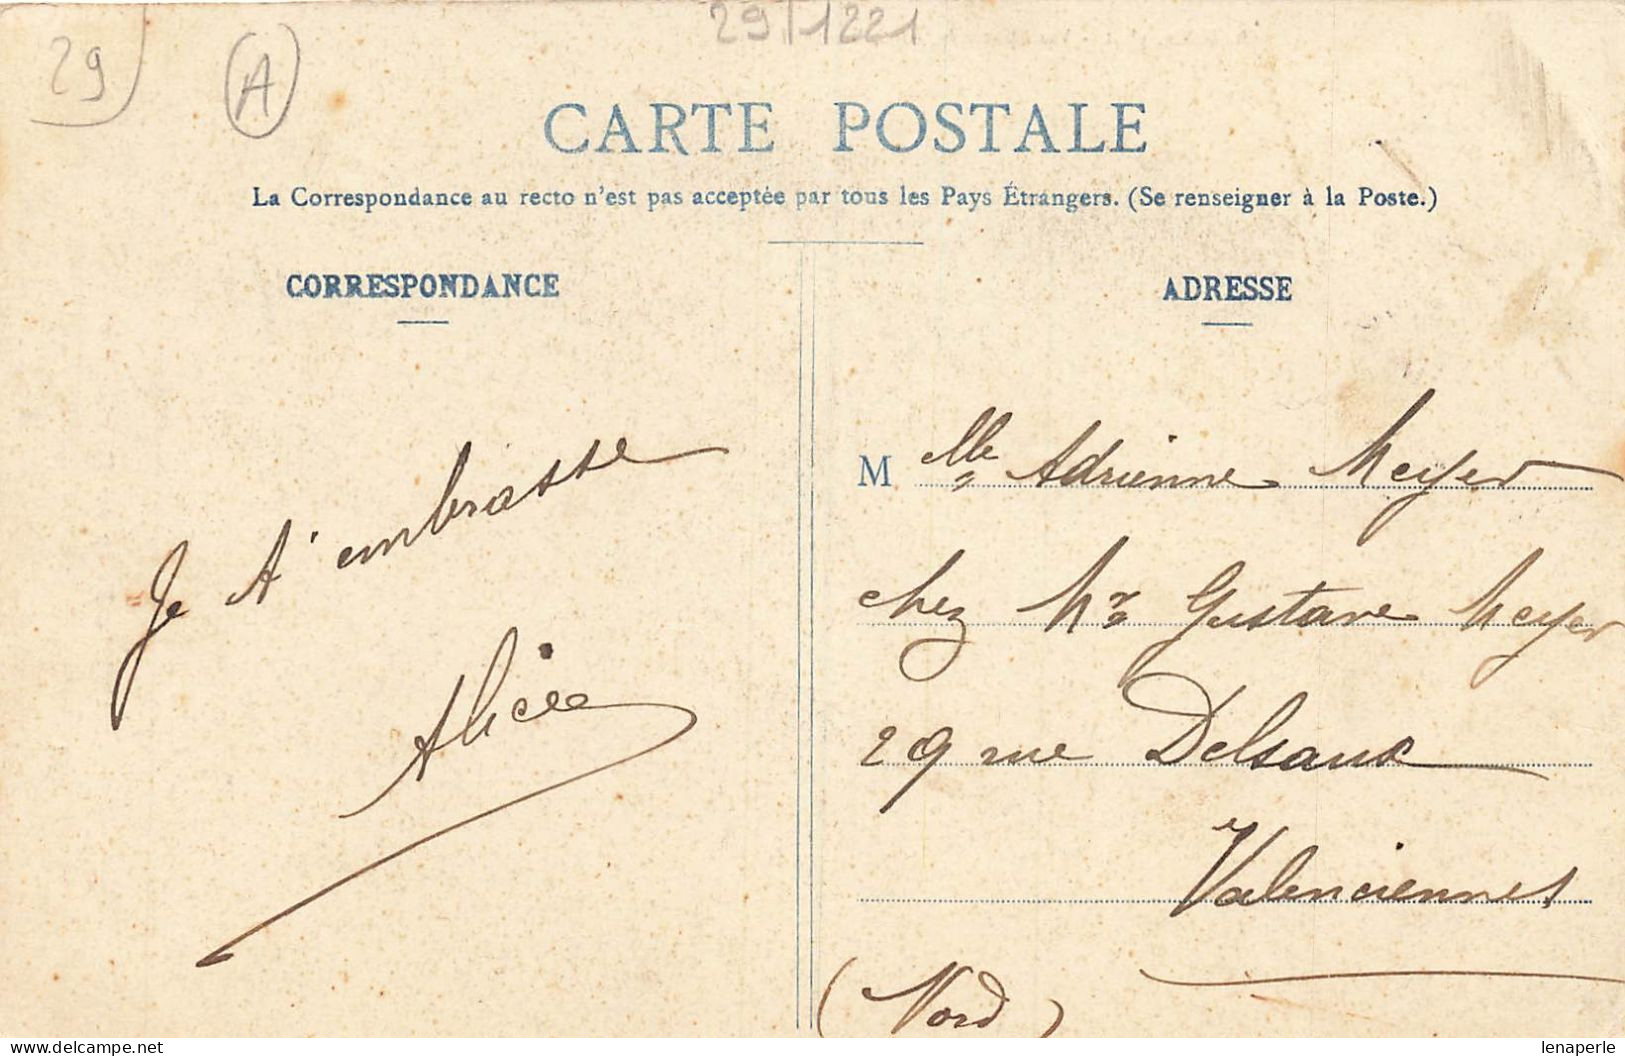 29
A
29T1221
CARTE POSTALE
La Correspondance au recto n'est pas acceptée par tous les Pays Étrangers. (Se renseigner à la Poste.)
CORRESPONDANCE
Je t'embrasse
Alice
ADRESSE
M elle Adrienne Meyer
chez Mr Gustave Meyer
29 rue Delsaux
Valenciennes
(Nord)
www.delcampe.net
lenaperle